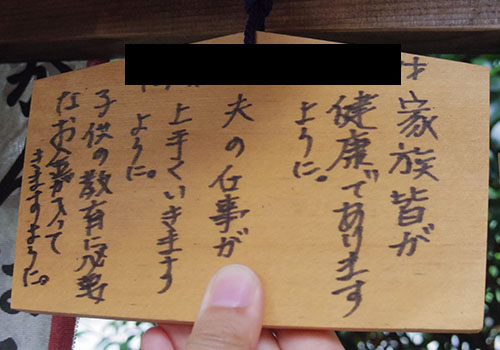 家族皆が
健康であります
ように。
夫の仕事が
上手くいきます
ように。
子供の教育に必要
なお金が入って
きますように。